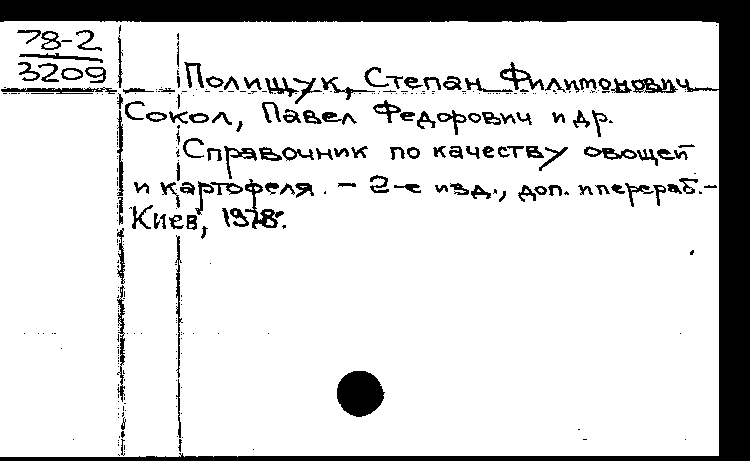 78-2
3209
Полищук, Степан Филимонович
Сокол, Павел Федорович и др.
Справочник по качеству овощей
и картофеля. – 2-е изд., доп. и перераб.–
Киев, 1978.